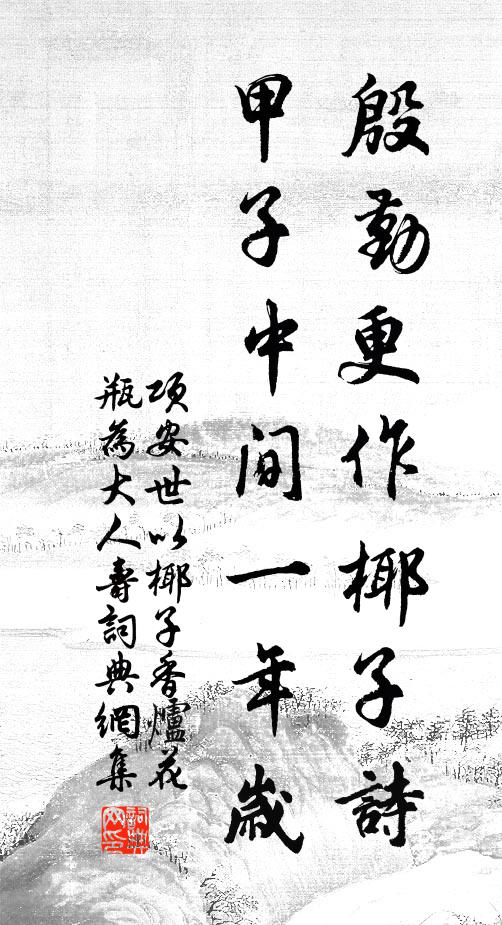 殷勤更作椰子詩
甲子中間一年歲
項安世以椰子香爐花
瓶為大人壽詞典網集